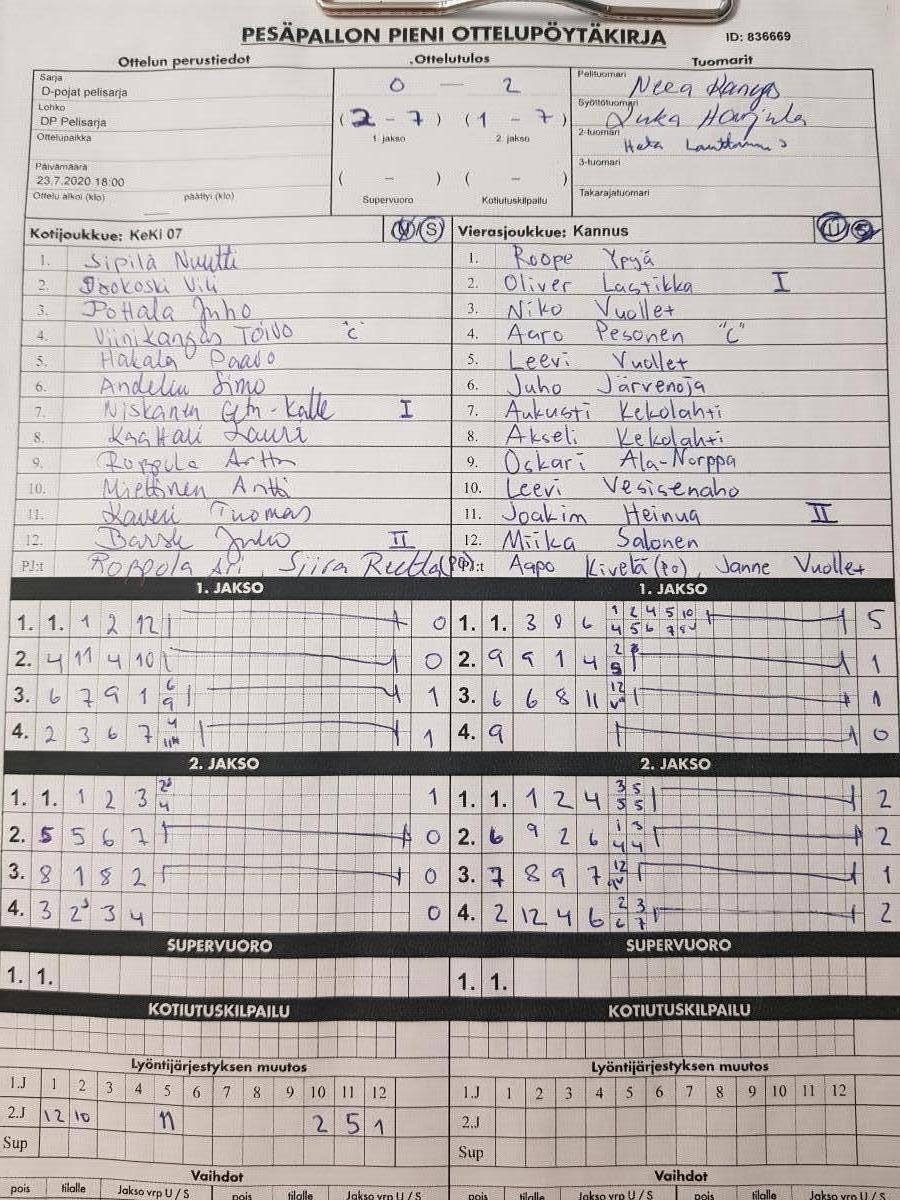 PESÄPALLON PIENI OTTELUPÖYTÄKIRJA ID: 836669
Ottelun perustiedot Ottelutulos Tuomarit
Sarja
D-pojat pelisarja
0 — 2
Pelituomari
Neea Kangas
Lohko
DP Pelisarja
(2 - 7) (1 - 7)
1. jakso 2. jakso
Syöttötuomari
Juka Harjula
Ottelupaikka
2-tuomari
Heta
Päivämäärä
23.7.2020 18:00
( - ) ( - )
3-tuomari
Ottelu alkoi (klo) päättyi (klo)
Supervuoro Kotiutuskilpailu
Takarajatuomari
Kotijoukkue: KeKi 07 U S
1. Sipilä Nuutti
2. Vili
3. Pottala Juho
4. Viinikangas Toivo "C"
5. Hakala Paavo
6. Andelin Simo
7. Niskanen Kalle I
8. Lauri
9. Roppola Arttu
10. Miettinen Antti
11. Kaveri Tuomas
12. Barsk Juho II
PJ:t Roppola Ari, Siira Reetta (PO)
Vierasjoukkue: Kannus U S
1. Roope Ypyä
2. Oliver Lastikka I
3. Niko Vuollet
4. Aaro Pesonen "C"
5. Leevi Vuollet
6. Juho Järvenoja
7. Aukusti Kekolahti
8. Akseli Kekolahti
9. Oskari Ala-Norppa
10. Leevi Vesisenaho
11. Joakim Heinua II
12. Miika Salonen
PJ:t Aapo Kivelä (PO), Janne Vuollet
1. JAKSO
1. 1. 1 2 12 0
2. 4 11 4 10 0
3. 6 7 9 1 6 9 1
4. 2 3 6 7 4 1
1. JAKSO
1. 1. 3 9 6 1 2 4 5 10 4 5 6 7 5
2. 9 9 1 4 2 1
3. 6 6 8 11 12 1
4. 9 0
2. JAKSO
1. 1. 1 2 3 2 4 1
2. 5 5 6 7 0
3. 8 1 8 2 0
4. 3 2 3 4 0
2. JAKSO
1. 1. 1 2 4 3 5 5 5 2
2. 6 9 2 6 1 3 4 4 2
3. 7 8 9 7 12 1
4. 2 12 4 6 2 3 6 7 2
SUPERVUORO SUPERVUORO
1. 1. 1. 1.
KOTIUTUSKILPAILU KOTIUTUSKILPAILU
Lyöntijärjestyksen muutos Lyöntijärjestyksen muutos
1.J 1 2 3 4 5 6 7 8 9 10 11 12 1.J 1 2 3 4 5 6 7 8 9 10 11 12
2.J 12 10 11 2 5 1 2.J
Sup Sup
Vaihdot Vaihdot
pois tilalle Jakso vrp U / S pois tilalle Jakso vrp U / S pois tilalle Jakso vrp U / S pois tilalle Jakso vrp U / S